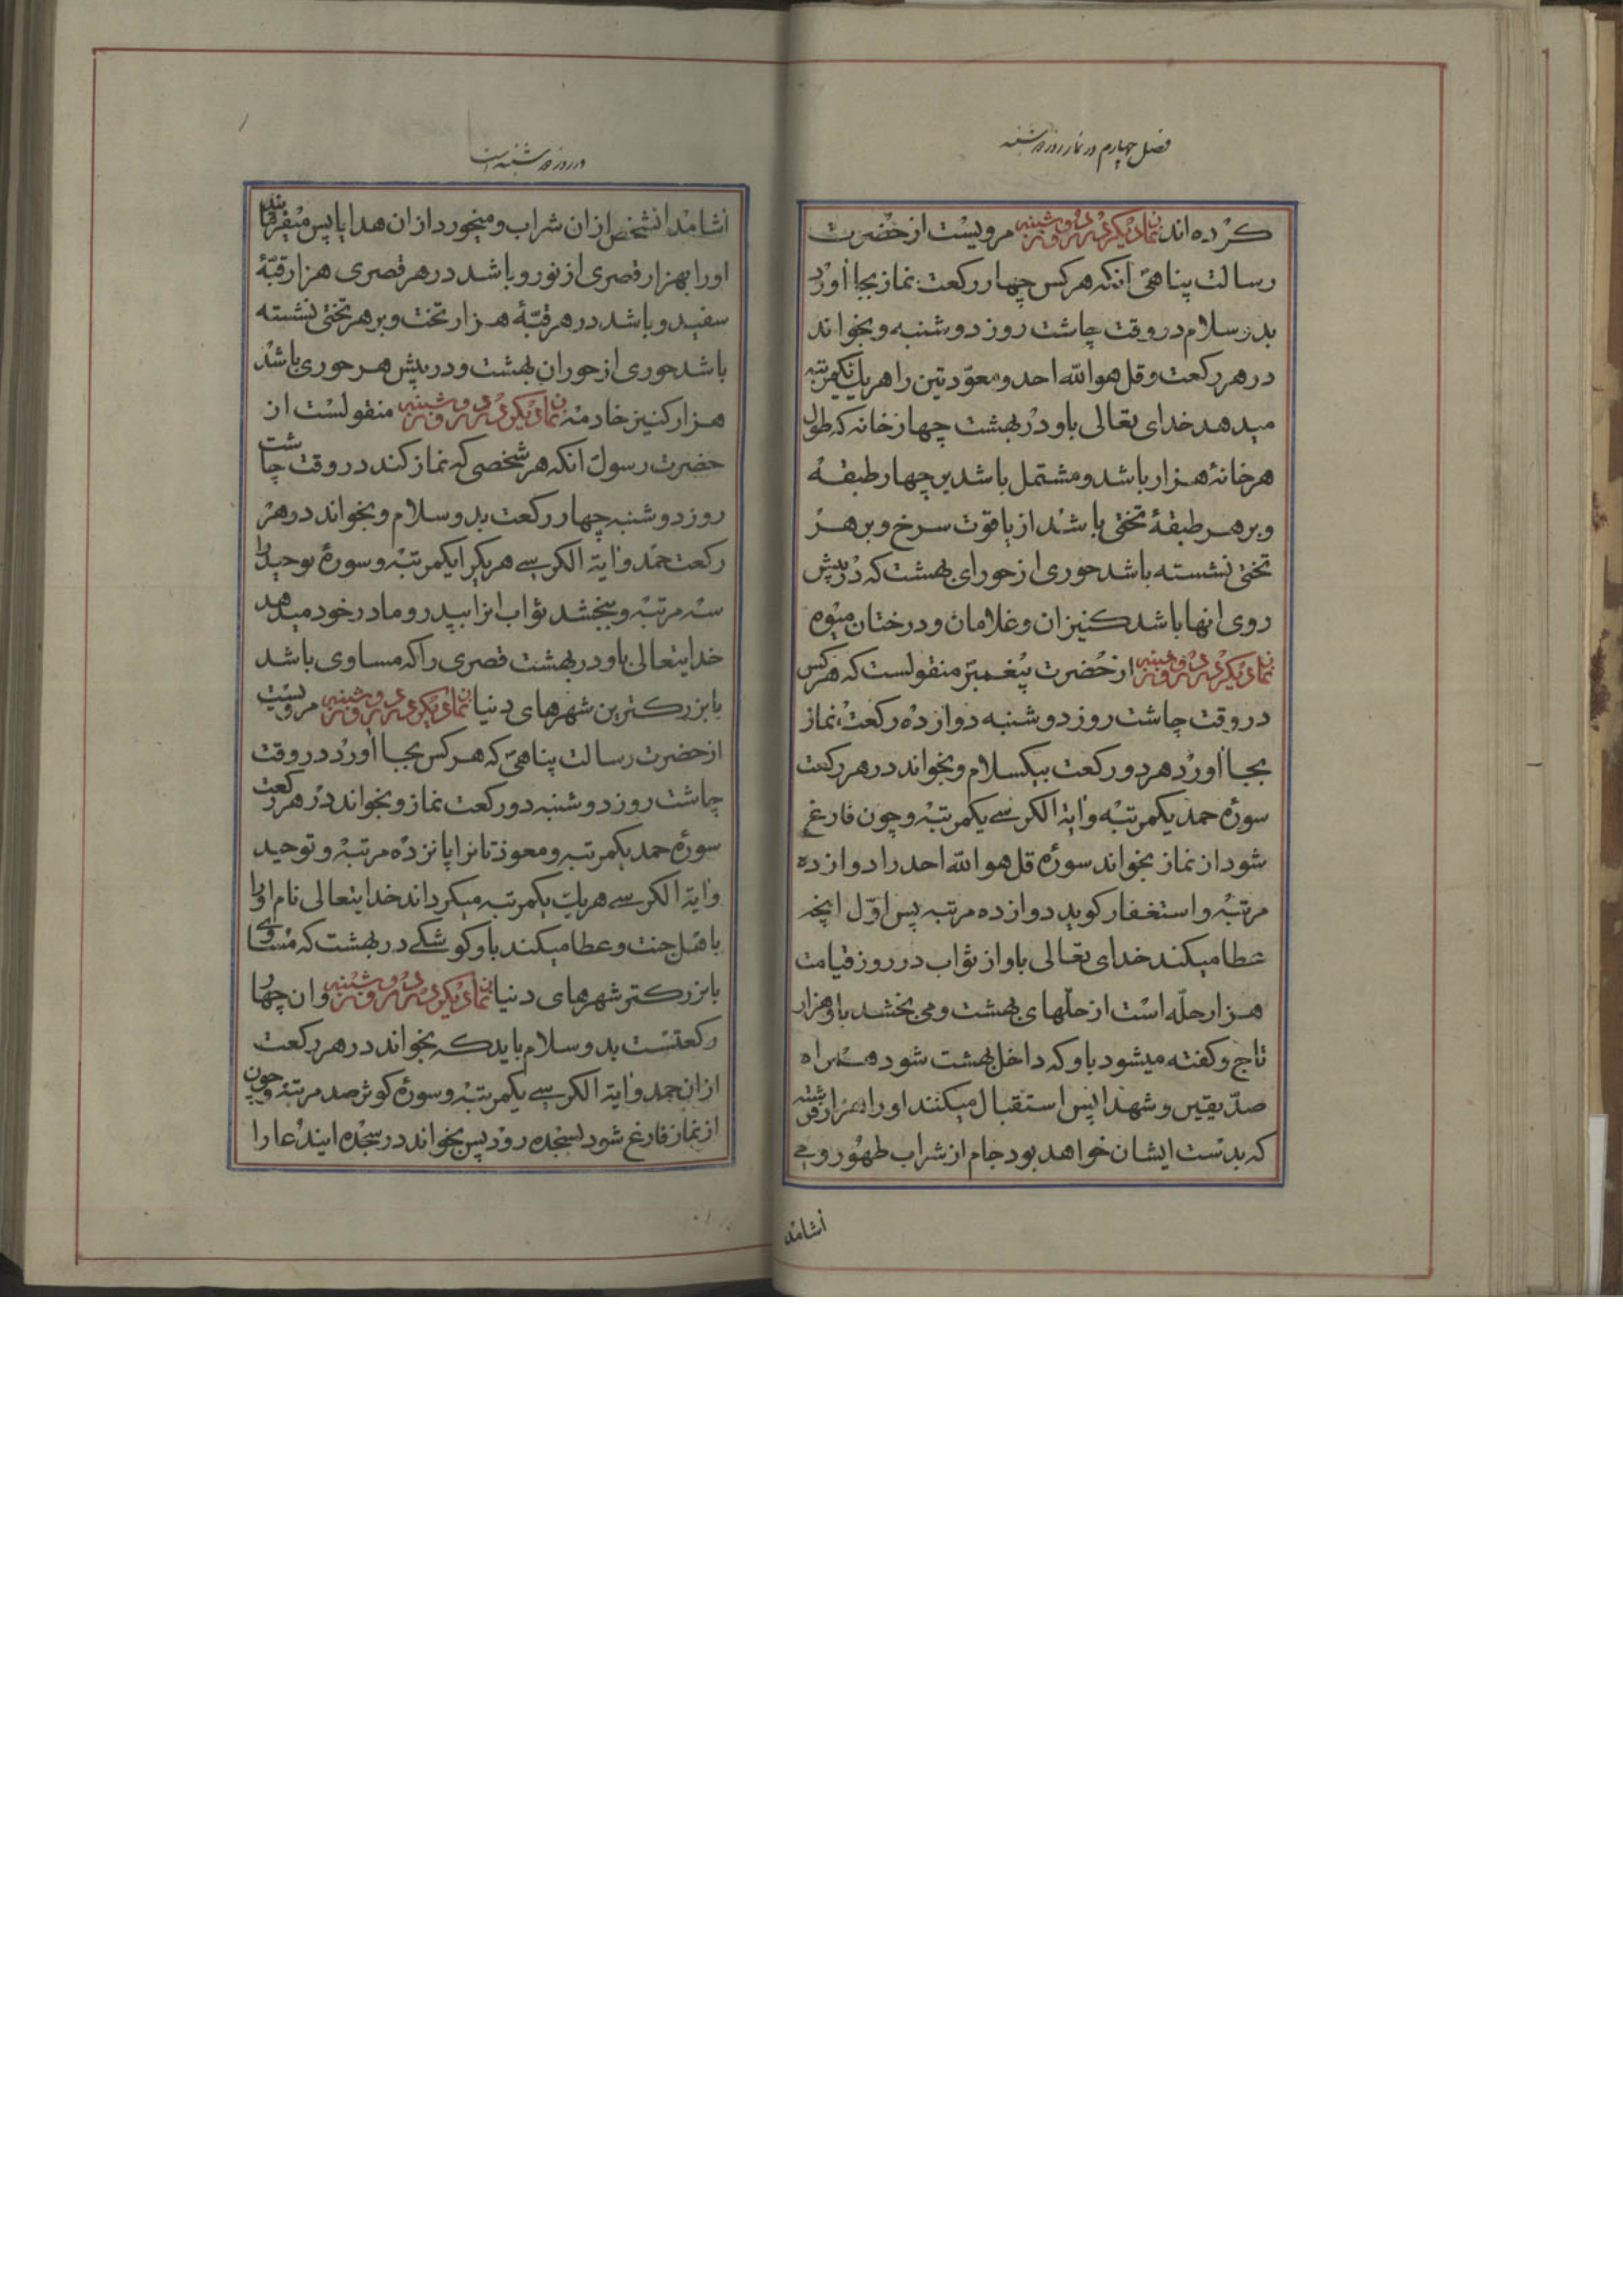 فصل چهارم در نماز روز دوشنبه
کرده اند نماز دیگر در روز دوشنبه مرویست از حضرت
رسالت پناهی انکه هر کس چهار رکعت نماز بجا اورد
بدو سلام در وقت چاشت روز دوشنبه و بخواند
در هر رکعت و قل هو الله احد و معوّذتین را هر یک یکمرتبه
میدهد خدای تعالی باو در بهشت چهار خانه که طول
هر خانهٔ هزار باشد و مشتمل باشد بر چهار طبقهٔ
و بر هر طبقهٔ تختی باشد از یاقوت سرخ و بر هر
تختی نشسته باشد حوری از حورای بهشت که در پیش
روی انها باشد کنیزان و غلامان و درختان میوه
نماز دیگر در روز دوشنبه از حضرت پیغمبر منقولست که هر کس
در وقت چاشت روز دوشنبه دوازده رکعت نماز
بجا اورد هر دو رکعت بیکسلام و بخواند در هر رکعت
سوره حمد یکمرتبه و ایة الکرسے یکمرتبه و چون فارغ
شود از نماز بخواند سوره قل هو الله احد را دوازده
مرتبه و استغفار کوید دوازده مرتبه پس اوّل انچه
عطا میکند خدای تعالی باو از ثواب در روز قیامت
هزار حلّه است از حلّهای بهشت و می بخشد باو هزار
تاج و کفته میشود باو که داخل بهشت شود همراه
صدّیقین و شهدا پس استقبال میکنند او را هزار فرشته
که بدست ایشان خواهد بود جام از شراب طهور و مے
اشامد
در روز دوشنبه است
اشامد انشخص از ان شراب و میخورد از ان هدایا پس میفرمایند
او را بهزار قصری از نور و باشد در هر قصری هزار قبّهٔ
سفید و باشد در هر قبّهٔ هزار تخت و بر هر تختی نشسته
باشد حوری از حوران بهشت و در پیش هر حوری باشد
هزار کنیز خادمه نماز دیگر در روز دوشنبه منقولست از
حضرت رسول انکه هر شخصی که نماز کند در وقت چاشت
روز دوشنبه چهار رکعت بدو سلام و بخواند در هر
رکعت حمد و ایة الکرسے هر یکرا یکمرتبه و سورهٔ توحید را
سه مرتبه و ببخشد ثواب انرا بپدر و مادر خود میدهد
خدایتعالی باو در بهشت قصری را که مساوی باشد
با بزرکترین شهرهای دنیا نماز دیگر در روز دوشنبه مرویست
از حضرت رسالت پناهی که هر کس بجا اورد در وقت
چاشت روز دوشنبه دو رکعت نماز و بخواند در هر رکعت
سورهٔ حمد یکمرتبه و معوذتانرا پانزده مرتبه و توحید
و ایة الکرسے هر یک یکمرتبه میکرداند خدایتعالی نام او را
باهل جنت و عطا میکند باو کوشکے در بهشت که مساوی
با بزرکتر شهرهای دنیا نماز دیگر در روز دوشنبه و ان چهار
رکعتست بدو سلام باید که بخواند در هر رکعت
از ان حمد و ایة الکرسے یکمرتبه و سورهٔ کوثر صد مرتبه و چون
از نماز فارغ شود بسجده رود پس بخواند در سجده ایندعا را